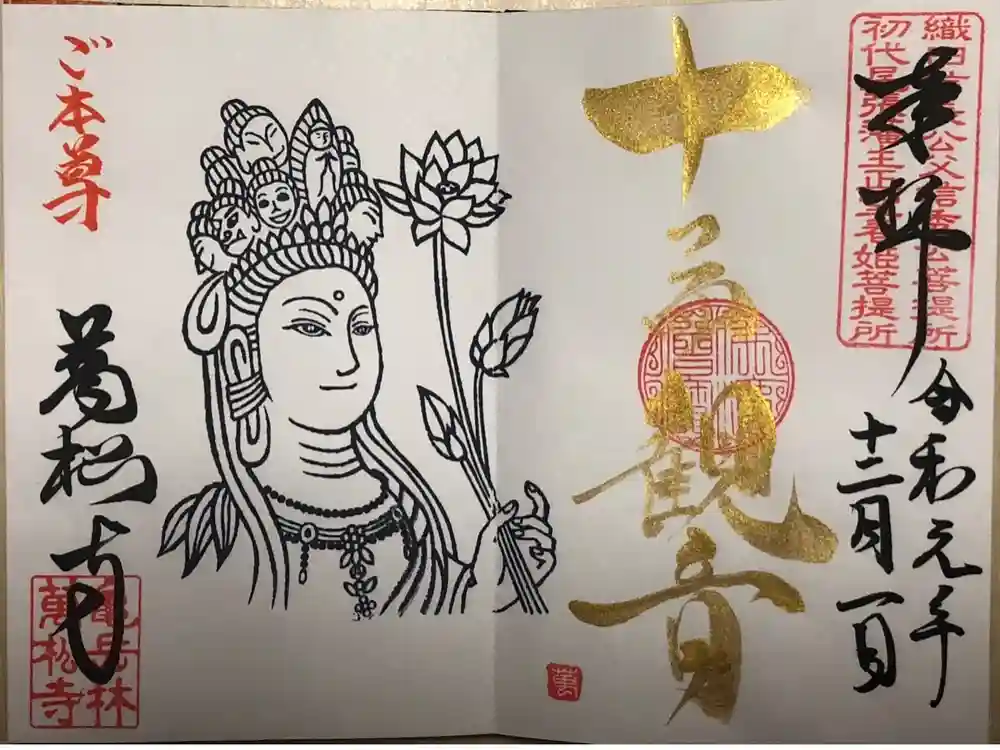 織田信長公父信秀公菩提所
初代尾張藩主正室春姫菩提所
奉拝
令和元年
十二月一日
十一面観音
萬
ご本尊
萬松寺
龜岳林
萬松寺